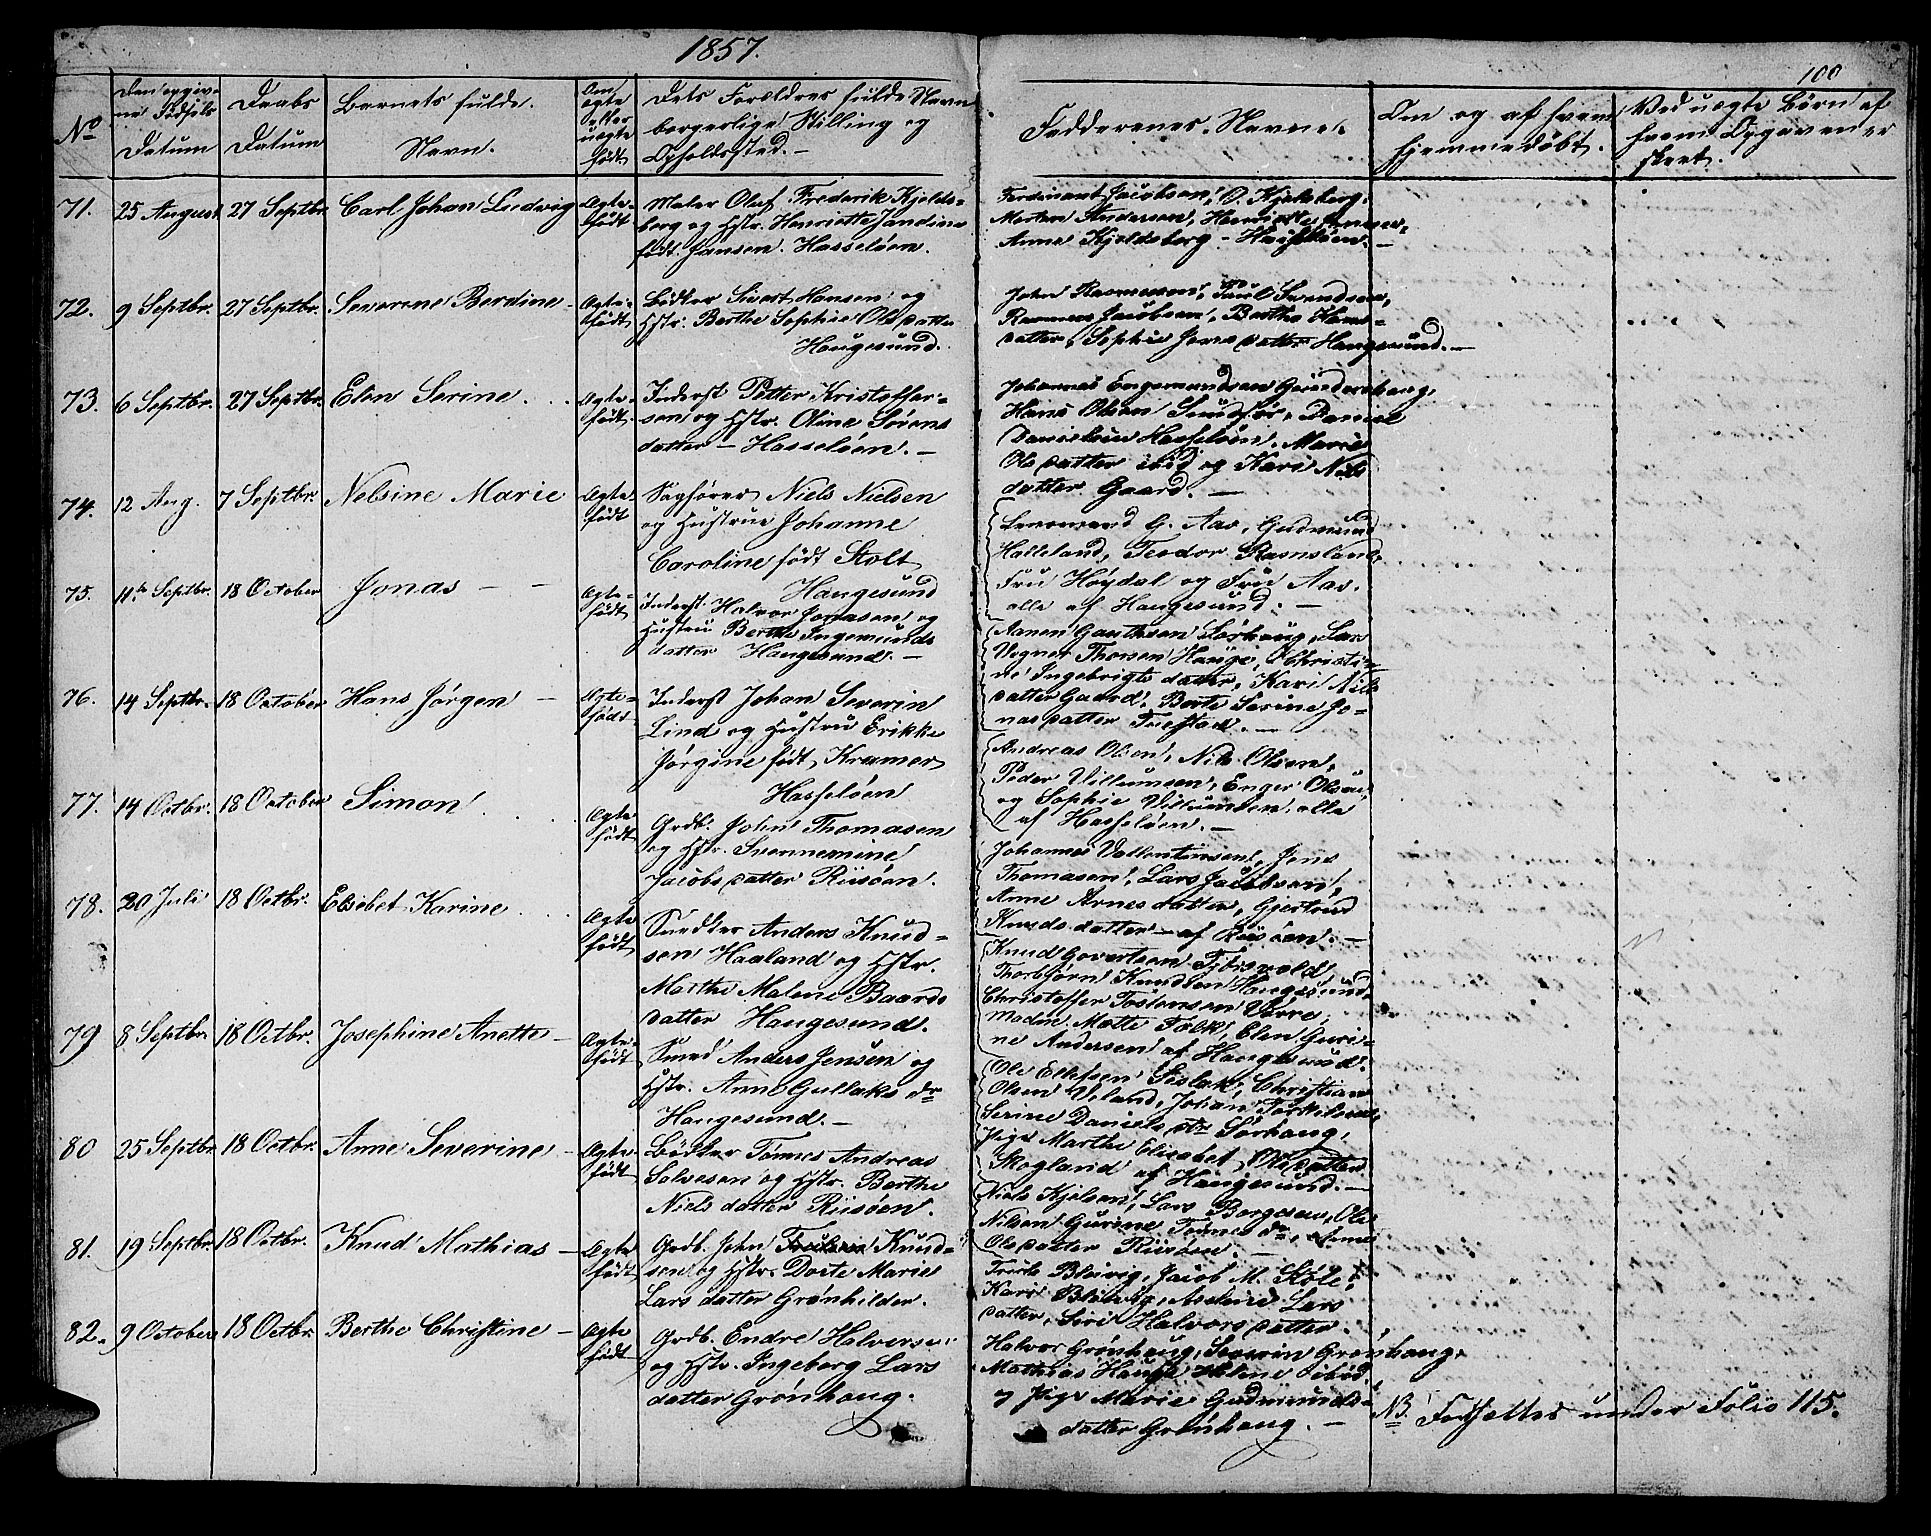 1857.
100
No
Den opgiv-
ne Födsels
Datum
Daabs
Datum
Barnets fulde
Navn.
Om
ægte
eller
uægte
födt
Dets Forældres fulde Navn
borgerlige Stilling og
Opholdssted. -
Faddernes Navne.
Om og af hvem
hjemmedöbt.
Ved uægte Börn af
hvem Opgaven er
skeet.
71. 25 August 27 Septbr. Carl Johan Ludvig
Ægte-
födt
Maler Oluf Frederik Kjelds-
berg og Hstr. Henriette Jandine
födt Jansen. Hasseløen.
Ferdinant Jacobsen, O. Kjelsberg,
Morten Andersen,
Anne Kjeldsberg - Hasseløen. -
72. 9 Septbr. 27 Septbr. Severine Berdine -
Ægte-
födt
Bödker Sivert Hansen og
Hstr. Berthe Sophie Olsdatter
Haugesund.
John Rasmussen, Poul Svendsen,
Rasmus Jacobsen, Bertha Hans-
datter, Sophie Jonsdatter Haugesund. -
73. 6 Septbr. 27 Septbr. Elen Serine.
Ægte-
födt
Inderst Petter Kristoffer-
sen og Hstr. Oline Sörens
datter - Hasseløen. -
Johannes Engemundsen
Hans Olsen Daniel
Danielsen Hasseløen, Marie
Olsdatter ibid og Kari Nils
datter Gaard. -
74. 12 Aug. 7 Septbr. Nelsine Marie
Ægte
födt
Sagförer Niels Nielsen
og Hustrue Johanne
Caroline födt Stolt
Haugesund
Lensmand G. Aas, Gudmund
Halleland, Teodor Ravnsland,
Fru Høydal og Fru Aas.
alle af Haugesund. -
75. 11te Septbr. 18 October Jonas - -
Ægte-
födt
Inderst Halvor Jonasen og
Hustru Berthe Ingemunds
datter Haugesund. -
Aanen Gauthsen Sörhaug, Lars
Vogner Thorsen Hauge, Christi-
ne Ingebrigtsdatter, Kari Nils
datter Gaard, Berte Serine Jo-
nasdatter
76. 14 Septbr. 18 October Hans Jørgen -
Ægte-
födt
Inderst Johan Severin
Lind og Hustru Erikke
Jørgine födt Kramer
Hasseløen
Andreas Olsen, Nils Olsen,
Peder Villumsen, Enger Olsen
og Sophie Villumsen, alle
af Hasseløen. -
77. 14 Octbr. 18 October Simon.
Ægte
födt
Grdb. John Thomasen
og Hstr. Svennemine
Jacobsdatter Riisøen.
Johannes Vallentinsen, Jens
Thomasen, Lars Jacobsen,
Anne Arnesdatter, Gjertrud
Knudsdatter - af Riisøen. -
78. 20 Juli 18 Octbr. Elsebet Karine
Ægte
födt
Snedker Anders Knud-
sen Haaland og Hstr.
Marthe Malene Baards
datter Haugesund.
Knud Govertsen
Thorbjørn Knudsen Haugesund,
Christoffer Tostensen
Madm. Mette Falk, Elen Guri-
ne Andersen af Haugesund.
79 8 Septbr. 18 Octbr. Josephine Anette -
Ægte-
födt
Smed Anders Jensen og
Hstr. Anne Gullaks dr
Haugesund. -
Ole Ellefsen Christian
Olsen Veland, Johan Torkilsen,
Serine Daniels dtr Sørhaug,
Pige Marthe Elisabet Olsdatter
Skogland af Haugesund. -
80 25 Septbr 18 Octbr. Anne Severine -
Ægte
födt
Bödker Tönnes Andreas
Salvesen og Hstr. Berthe
Nielsdatter Riisøen.
Niels Kjelsen, Lars Borgesen, Ole
Nilsen Gurine Tönnes dr,
Olsdatter Riisøen. -
81. 19 Septbr. 18 Octbr. Knud Mathias -
Ægte
födt
Grdb. John Knud-
sen og Hstr. Dorte Marie
Larsdatter Grønhilder.
Bleivig, Jacob M. Støle,
Kari Bleivig, Lars
datter, Siri Halvorsdatter.
82. 9 October 18 Octbr. Berthe Christine -
Ægte
födt
Grdb. Endre Halvorsen
og Hstr. Ingeborg Lars
datter Grönhaug.
Halvor Grønhaug, Severin Grønhaug,
Mathias Hauge
og Pige Marie Gudmunds-
datter Grønhaug. -
NB. Fortsettes under Folio 115.